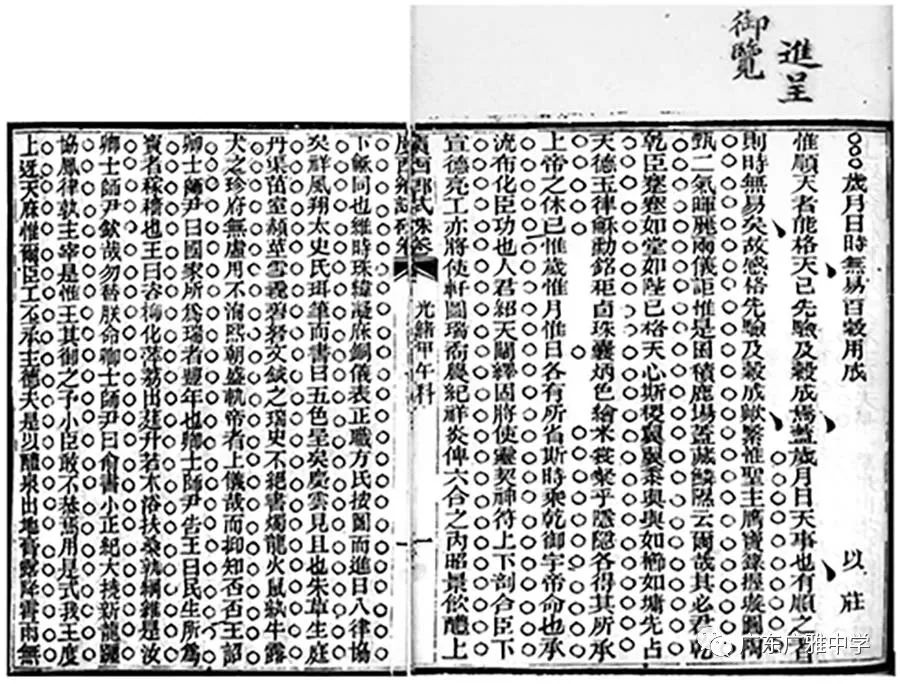 進呈
御覽
歲月日時無易百穀用成
以莊
惟順天者能格天已先驗及穀成焉蓋歲月日天事也有順之者
則時無易矣故感格先驗及穀成歟繫惟聖主膺寶籙握璇圖陶
甄二氣暉麗兩儀詎惟是囷積鹿場蓋藏鱗云爾哉其必君乾
乾臣蹇蹇如堂如陛已格天心斯稷翼翼黍與與如櫛如墉先占
天德玉律龢動銘秬卣珠囊炳色繪米裳粲乎隱隱各得其所承
上帝之休已惟歲惟月惟日各有所省斯時乘乾御宇帝命也承
流布化臣功也人君紹天闡繹固將使靈契神符上下剖合臣下
宣德亮工亦將使軒圖瑞農紀祥炎俾六合之內昭景飲醴上
廣西鄉試硃卷
光緒甲午科
一
下龢同也維時珠緯凝庥銅儀表正職方氏按圖而進曰八律協
矣祥風翔太史氏珥筆而書曰五色呈矣慶雲見且也朱草生庭
丹茁室赬莖雪毳碧砮文鉞之瑞史不絕書燭龍火鼠牛露
犬之珍府無虛用不洵熙朝盛軌帝者上儀哉而抑知否否王詔
卿士師尹曰國家所為瑞者豐年也卿士師尹告王曰民生所為
寶者稼穡也王曰咨御化出升若木浴扶桑孰綱維是汝
卿士師尹欽哉勿替朕命卿士師尹曰俞書小正紀大撓新龍躔
協鳳律孰主宰是惟王其御之予小臣敢不恭焉用是式我王度
上迓天庥惟爾臣工丕承士德夫是以醴泉出地膏露降霄雨無
广东广雅中学